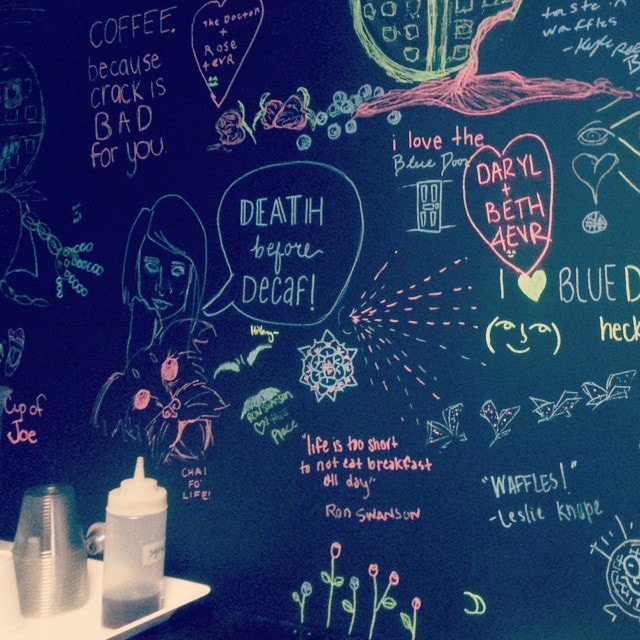 COFFEE.
because
crack is
BAD
for you.
THE DOCTOR
+
ROSE
4EVR
waffles
i love the
Blue Door
DARYL
+
BETH
4EVR
DEATH
before
Decaf!
I BLUE D
heck
Cup of
Joe
CHAI
FO'
LIFE!
"life is too short
to not eat breakfast
all day"
RON SWANSON
"WAFFLES!"
-Leslie Knope